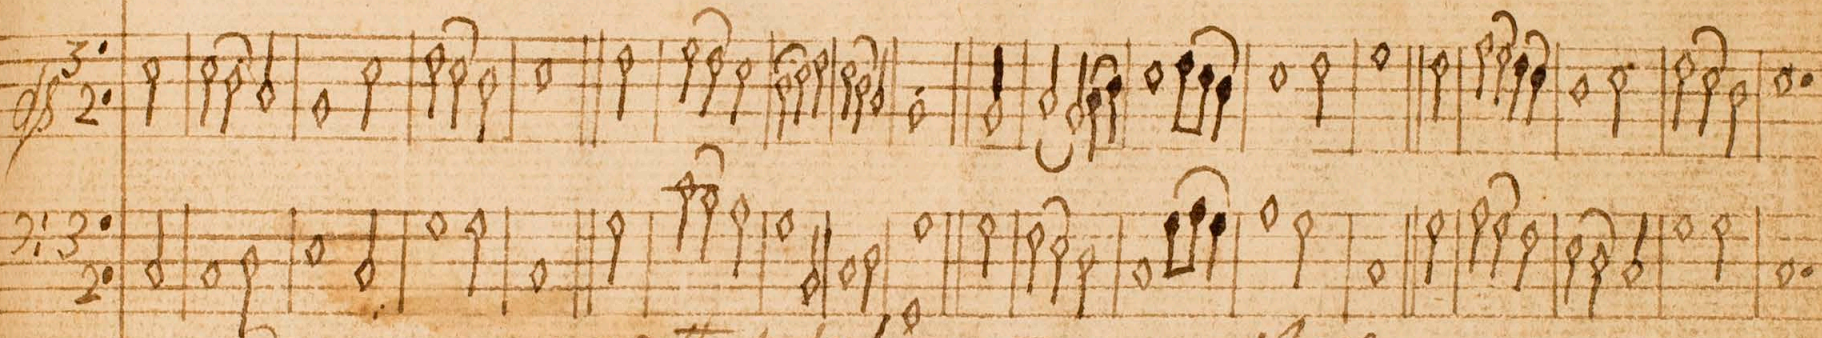 3.
2.
3.
2.